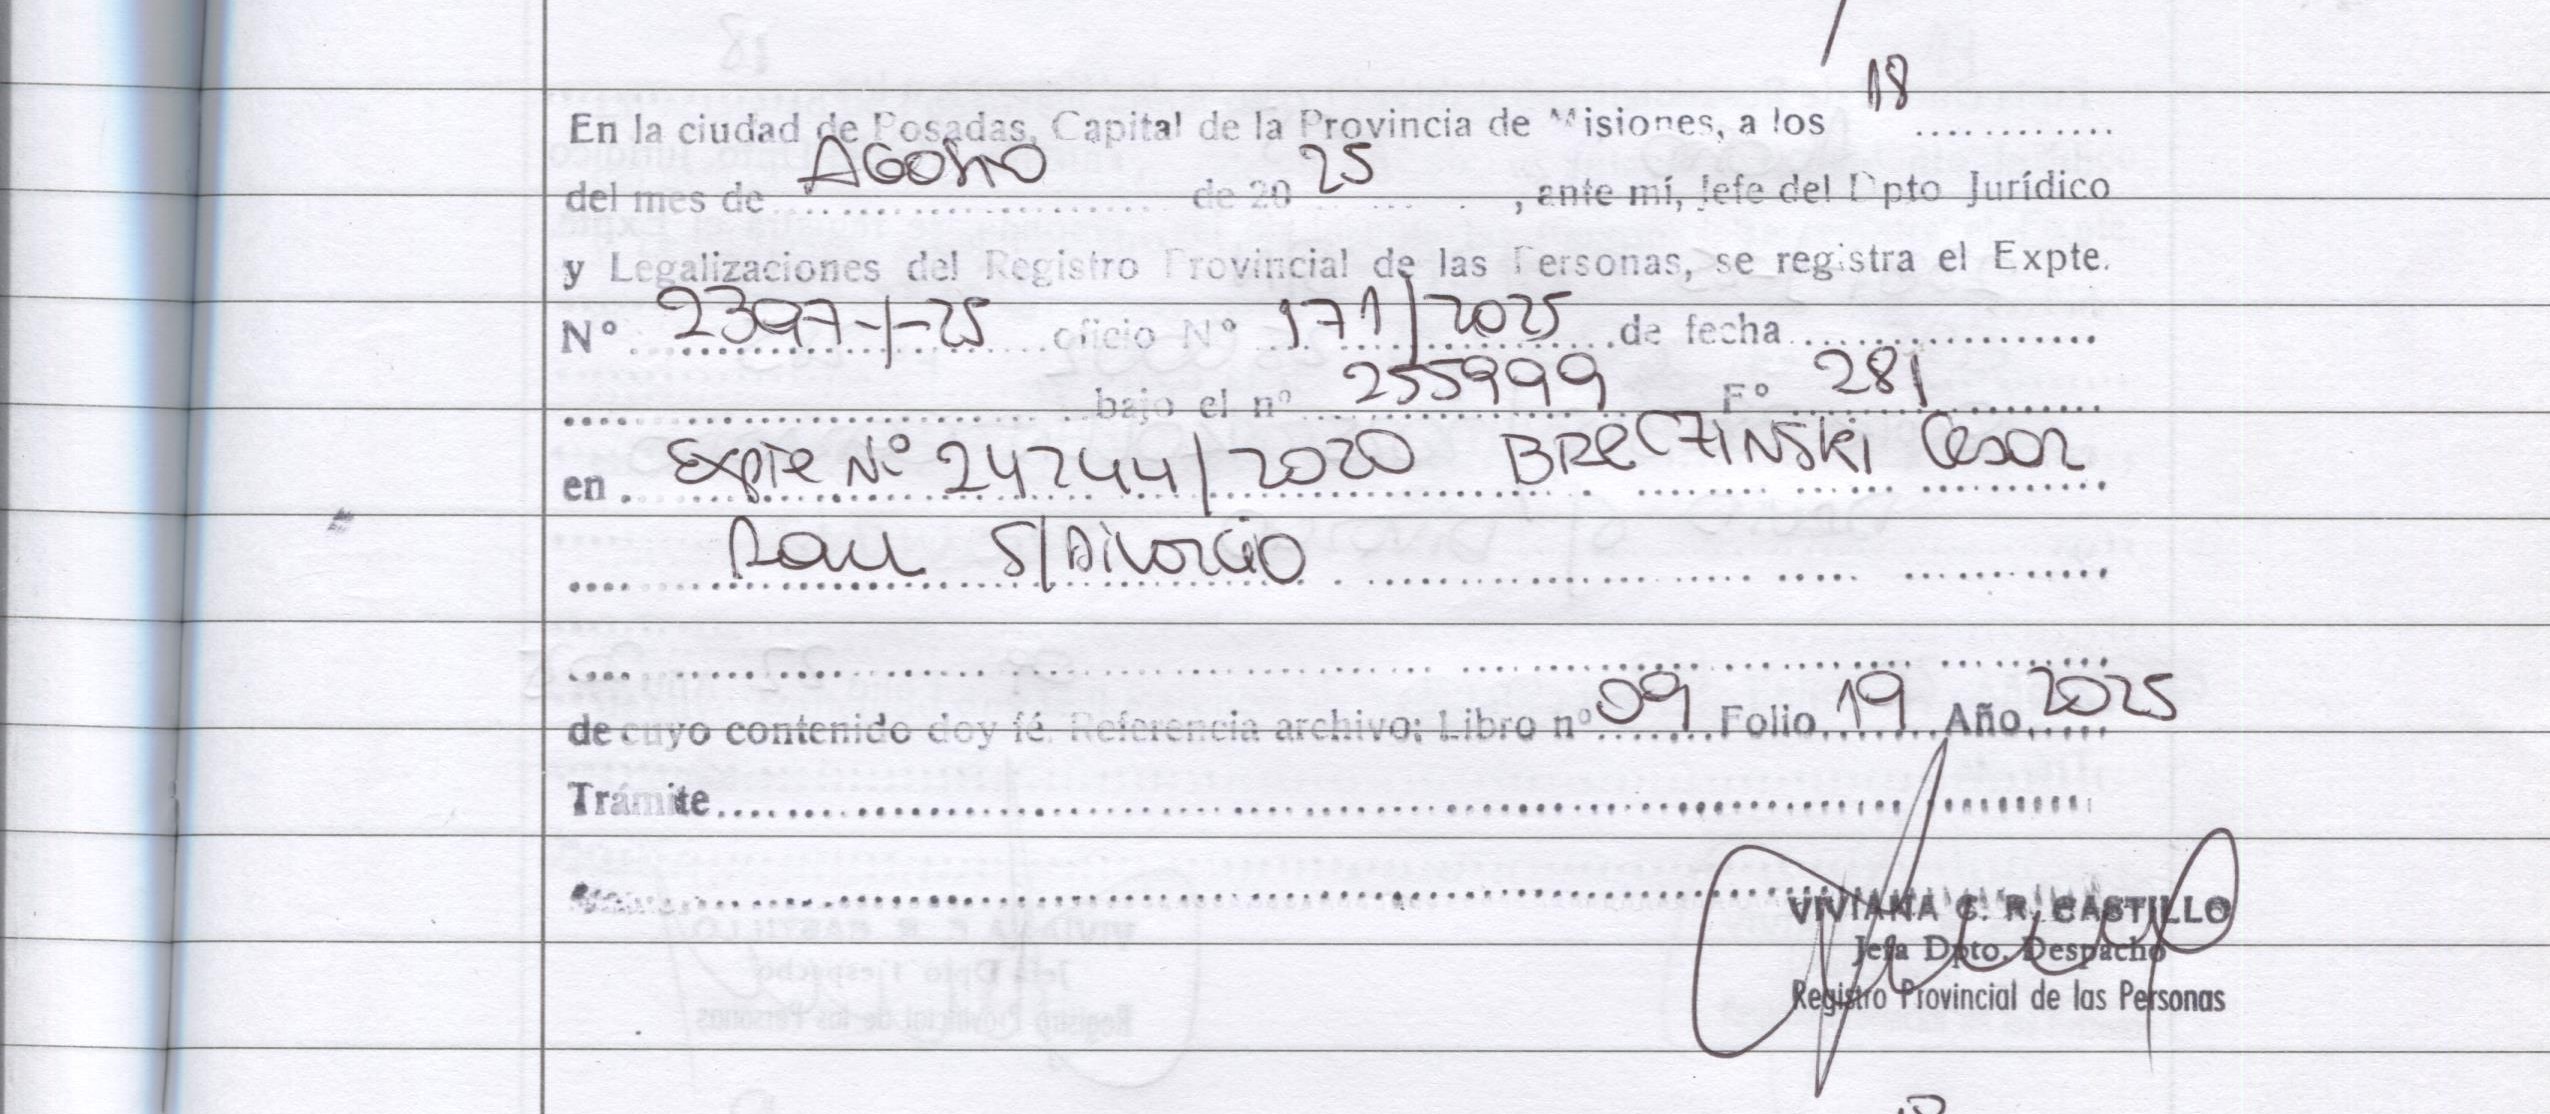 18
En la ciudad de Posadas, Capital de la Provincia de Misiones, a los ............
del mes de AGOSTO de 20 25 , ante mí, Jefe del Dpto Jurídico
y Legalizaciones del Registro Provincial de las Personas, se registra el Expte.
Nº 2397-/-25 oficio Nº 171/2025 de fecha ..................
bajo el nº 255999 Fº 281
en Expte Nº 24244/2020 BRECZINSKI Cesar
Raul S/Divorcio
de cuyo contenido doy fé. Referencia archivo: Libro nº 09 Folio 19 Año 2025
Trámite
VIVIANA G. R. CASTILLO
Jefa Dpto. Despacho
Registro Provincial de las Personas